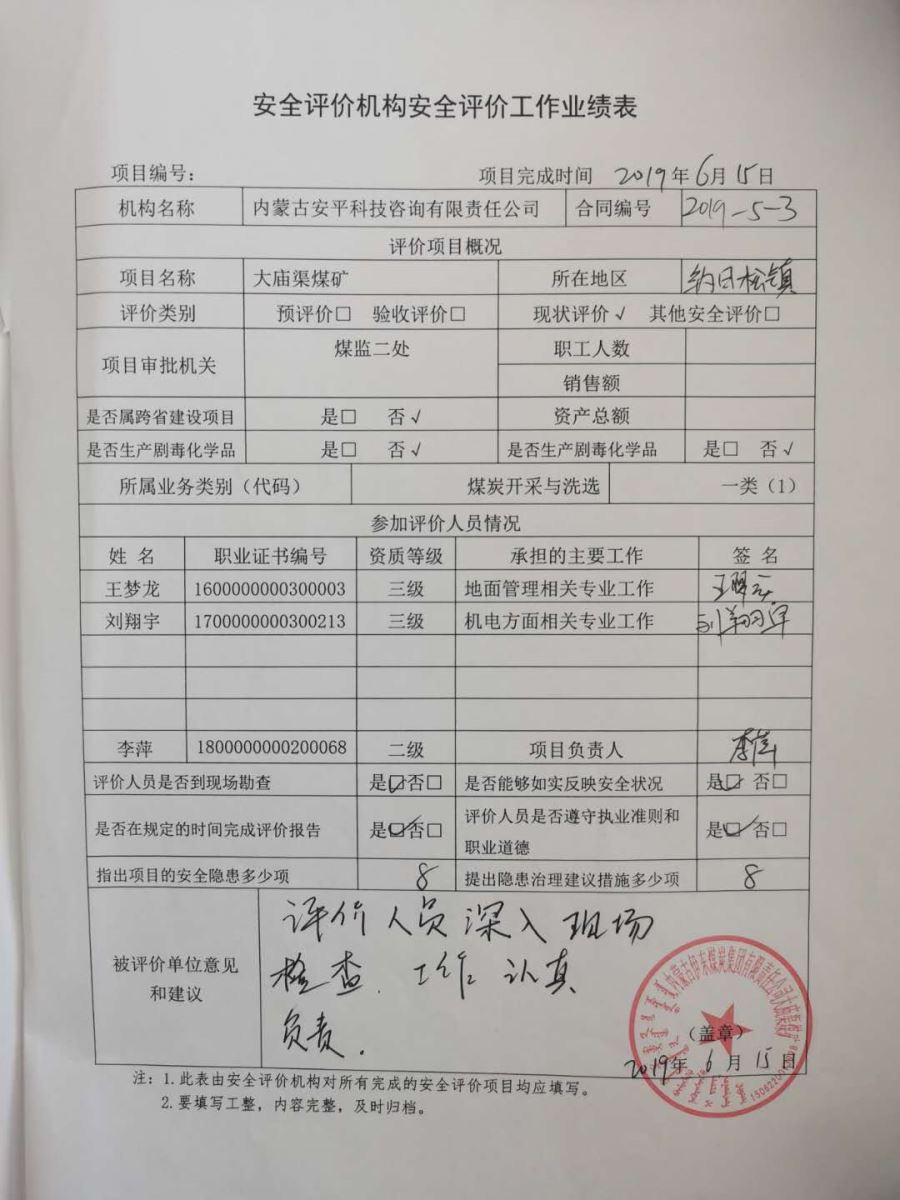 安全评价机构安全评价工作业绩表
项目编号： 项目完成时间 2019年6月15日
机构名称 内蒙古安平科技咨询有限责任公司 合同编号 2019-5-3
评价项目概况
项目名称 大庙渠煤矿 所在地区 纳日松镇
评价类别 预评价□ 验收评价□ 现状评价√ 其他安全评价□
项目审批机关 煤监二处 职工人数
销售额
是否属跨省建设项目 是□ 否√ 资产总额
是否生产剧毒化学品 是□ 否√ 是否生产剧毒化学品 是□ 否√
所属业务类别（代码） 煤炭开采与洗选 一类（1）
参加评价人员情况
姓 名 职业证书编号 资质等级 承担的主要工作 签 名
王梦龙 1600000000300003 三级 地面管理相关专业工作
刘翔宇 1700000000300213 三级 机电方面相关专业工作 刘翔宇
李萍 1800000000200068 二级 项目负责人 李萍
评价人员是否到现场勘查 是☑否□ 是否能够如实反映安全状况 是☑ 否□
是否在规定的时间完成评价报告 是☑否□ 评价人员是否遵守执业准则和
职业道德 是☑ 否□
指出项目的安全隐患多少项 8 提出隐患治理建议措施多少项 8
被评价单位意见
和建议
评价人员深入现场
检查．工作认真
负责．
（盖章）
2019年6月15日
注：1.此表由安全评价机构对所有完成的安全评价项目均应填写。
2.要填写工整，内容完整，及时归档。